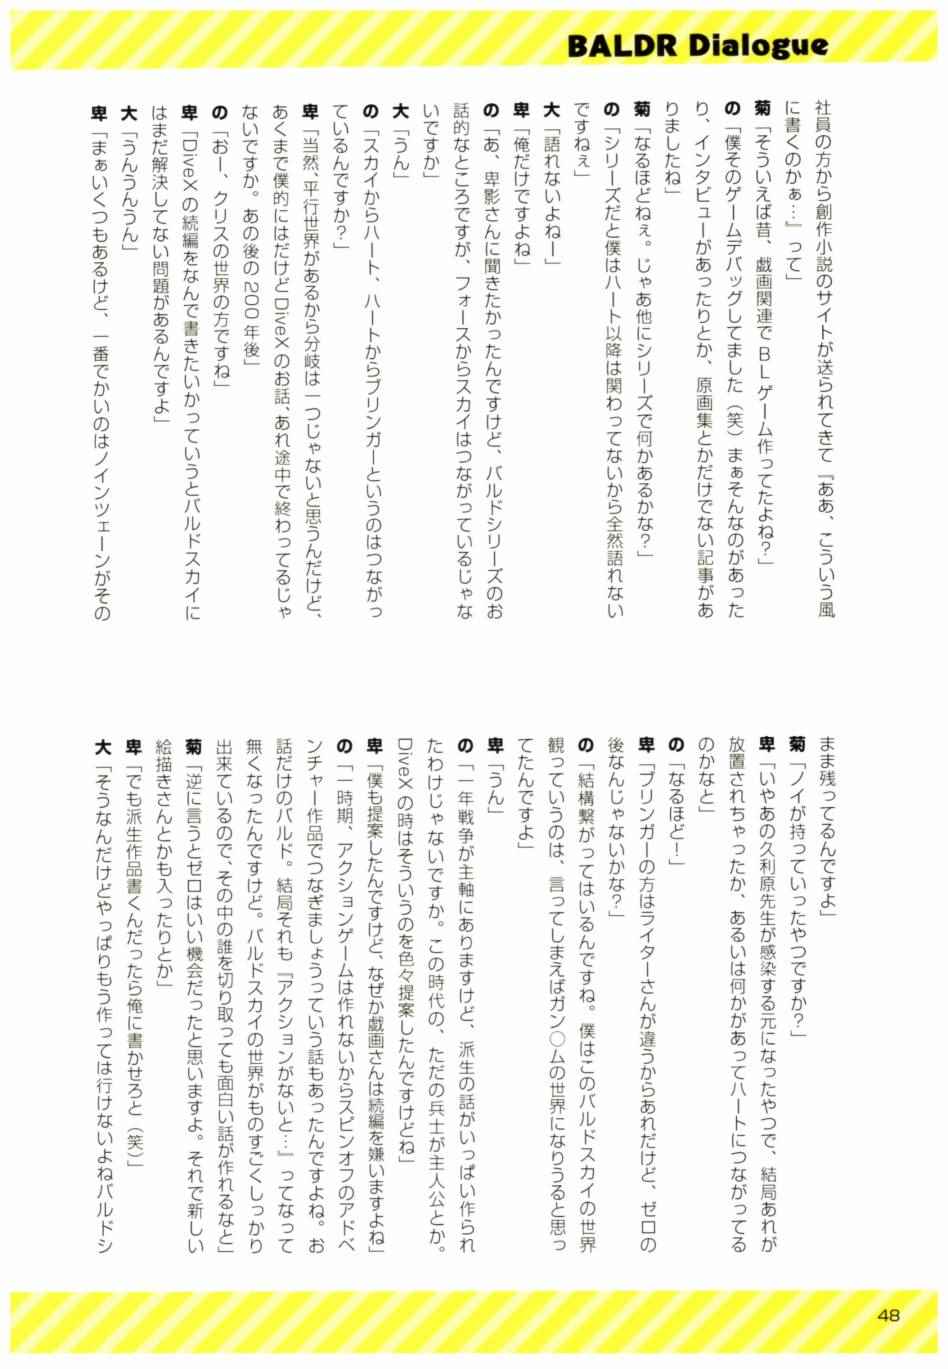 BALDR Dialogue
社員の方から創作小説のサイトが送られてきて『ああ、こういう風
に書くのかぁ…』って」
菊「そういえば昔、戯画関連でBLゲーム作ってたよね?」
の「僕そのゲームデバッグしてました（笑）まぁそんなのがあった
り、インタビューがあったりとか、原画集とかだけでない記事があ
りましたね」
菊「なるほどねぇ。じゃあ他にシリーズで何かあるかな?」
の「シリーズだと僕はハート以降は関わってないから全然語れない
ですねぇ」
大「語れないよねー」
卑「俺だけですよね」
の「あ、卑影さんに聞きたかったんですけど、バルドシリーズのお
話的なところですが、フォースからスカイはつながっているじゃな
いですか」
大「うん」
の「スカイからハート、ハートからブリンガーというのはつながっ
ているんですか?」
卑「当然、平行世界があるから分岐は一つじゃないと思うんだけど、
あくまで僕的にはだけどDiveXのお話、あれ途中で終わってるじゃ
ないですか。あの後の200年後」
の「おー、クリスの世界の方ですね」
卑「DiveXの続編をなんで書きたいかっていうとバルドスカイに
はまだ解決してない問題があるんですよ」
大「うんうんうん」
卑「まぁいくつもあるけど、一番でかいのはノインツェーンがその
まま残ってるんですよ」
菊「ノイが持っていったやつですか?」
卑「いやあの久利原先生が感染する元になったやつで、結局あれが
放置されちゃったか、あるいは何かがあってハートにつながってる
のかなと」
の「なるほど!」
卑「ブリンガーの方はライターさんが違うからあれだけど、ゼロの
後なんじゃないかな?」
の「結構繋がってはいるんですね。僕はこのバルドスカイの世界
観っていうのは、言ってしまえばガン○ムの世界になりうると思っ
てたんですよ」
卑「うん」
の「一年戦争が主軸にありますけど、派生の話がいっぱい作られ
たわけじゃないですか。この時代の、ただの兵士が主人公とか。
DiveXの時はそういうのを色々提案したんですけどね」
卑「僕も提案したんですけど、なぜか戯画さんは続編を嫌いますよね」
の「一時期、アクションゲームは作れないからスピンオフのアドベ
ンチャー作品でつなぎましょうっていう話もあったんですよね。お
話だけのバルド。結局それも『アクションがないと…』ってなって
無くなったんですけど。バルドスカイの世界がものすごくしっかり
出来ているので、その中の誰を切り取っても面白い話が作れるなと」
菊「逆に言うとゼロはいい機会だったと思いますよ。それで新しい
絵描きさんとかも入ったりとか」
卑「でも派生作品書くんだったら俺に書かせろと（笑）」
大「そうなんだけどやっぱりもう作っては行けないよねバルドシ
48